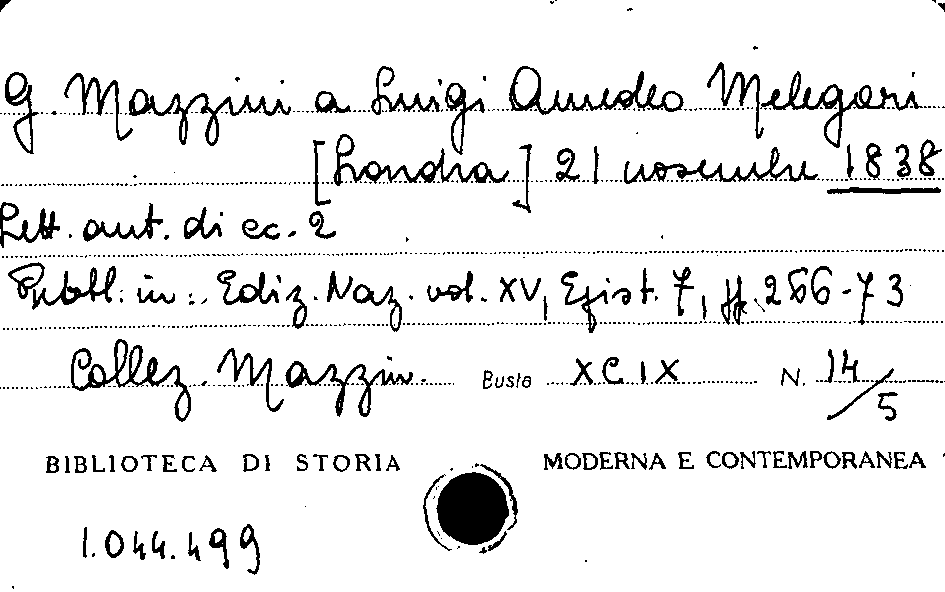 G. Mazzini a Luigi Amedeo Melegari
[Londra] 21 novembre 1838
Lett. aut. di cc. 2
Pubbl. in: Ediz. Naz. vol. XV, Epist. 7, pp. 266-73
Collez. Mazzin. Busta XCIX N. 14/5
BIBLIOTECA DI STORIA MODERNA E CONTEMPORANEA
1.044.499